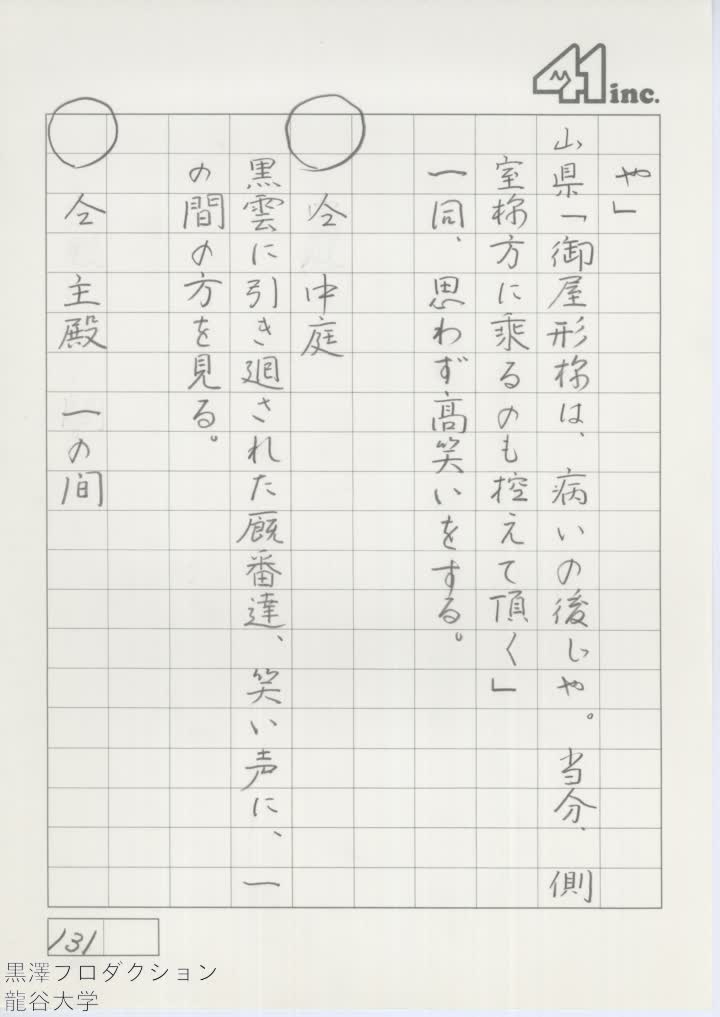 41 inc.
や」
山県「御屋形様は、病いの後じや。当分、側
室様方に乗るのも控えて頂く」
一同、思わず高笑いをする。
〇 仝 中庭
黒雲に引き廻された厩番達、笑い声に、一
の間の方を見る。
〇 仝 主殿 一の間
131
黒澤プロダクション
龍谷大学